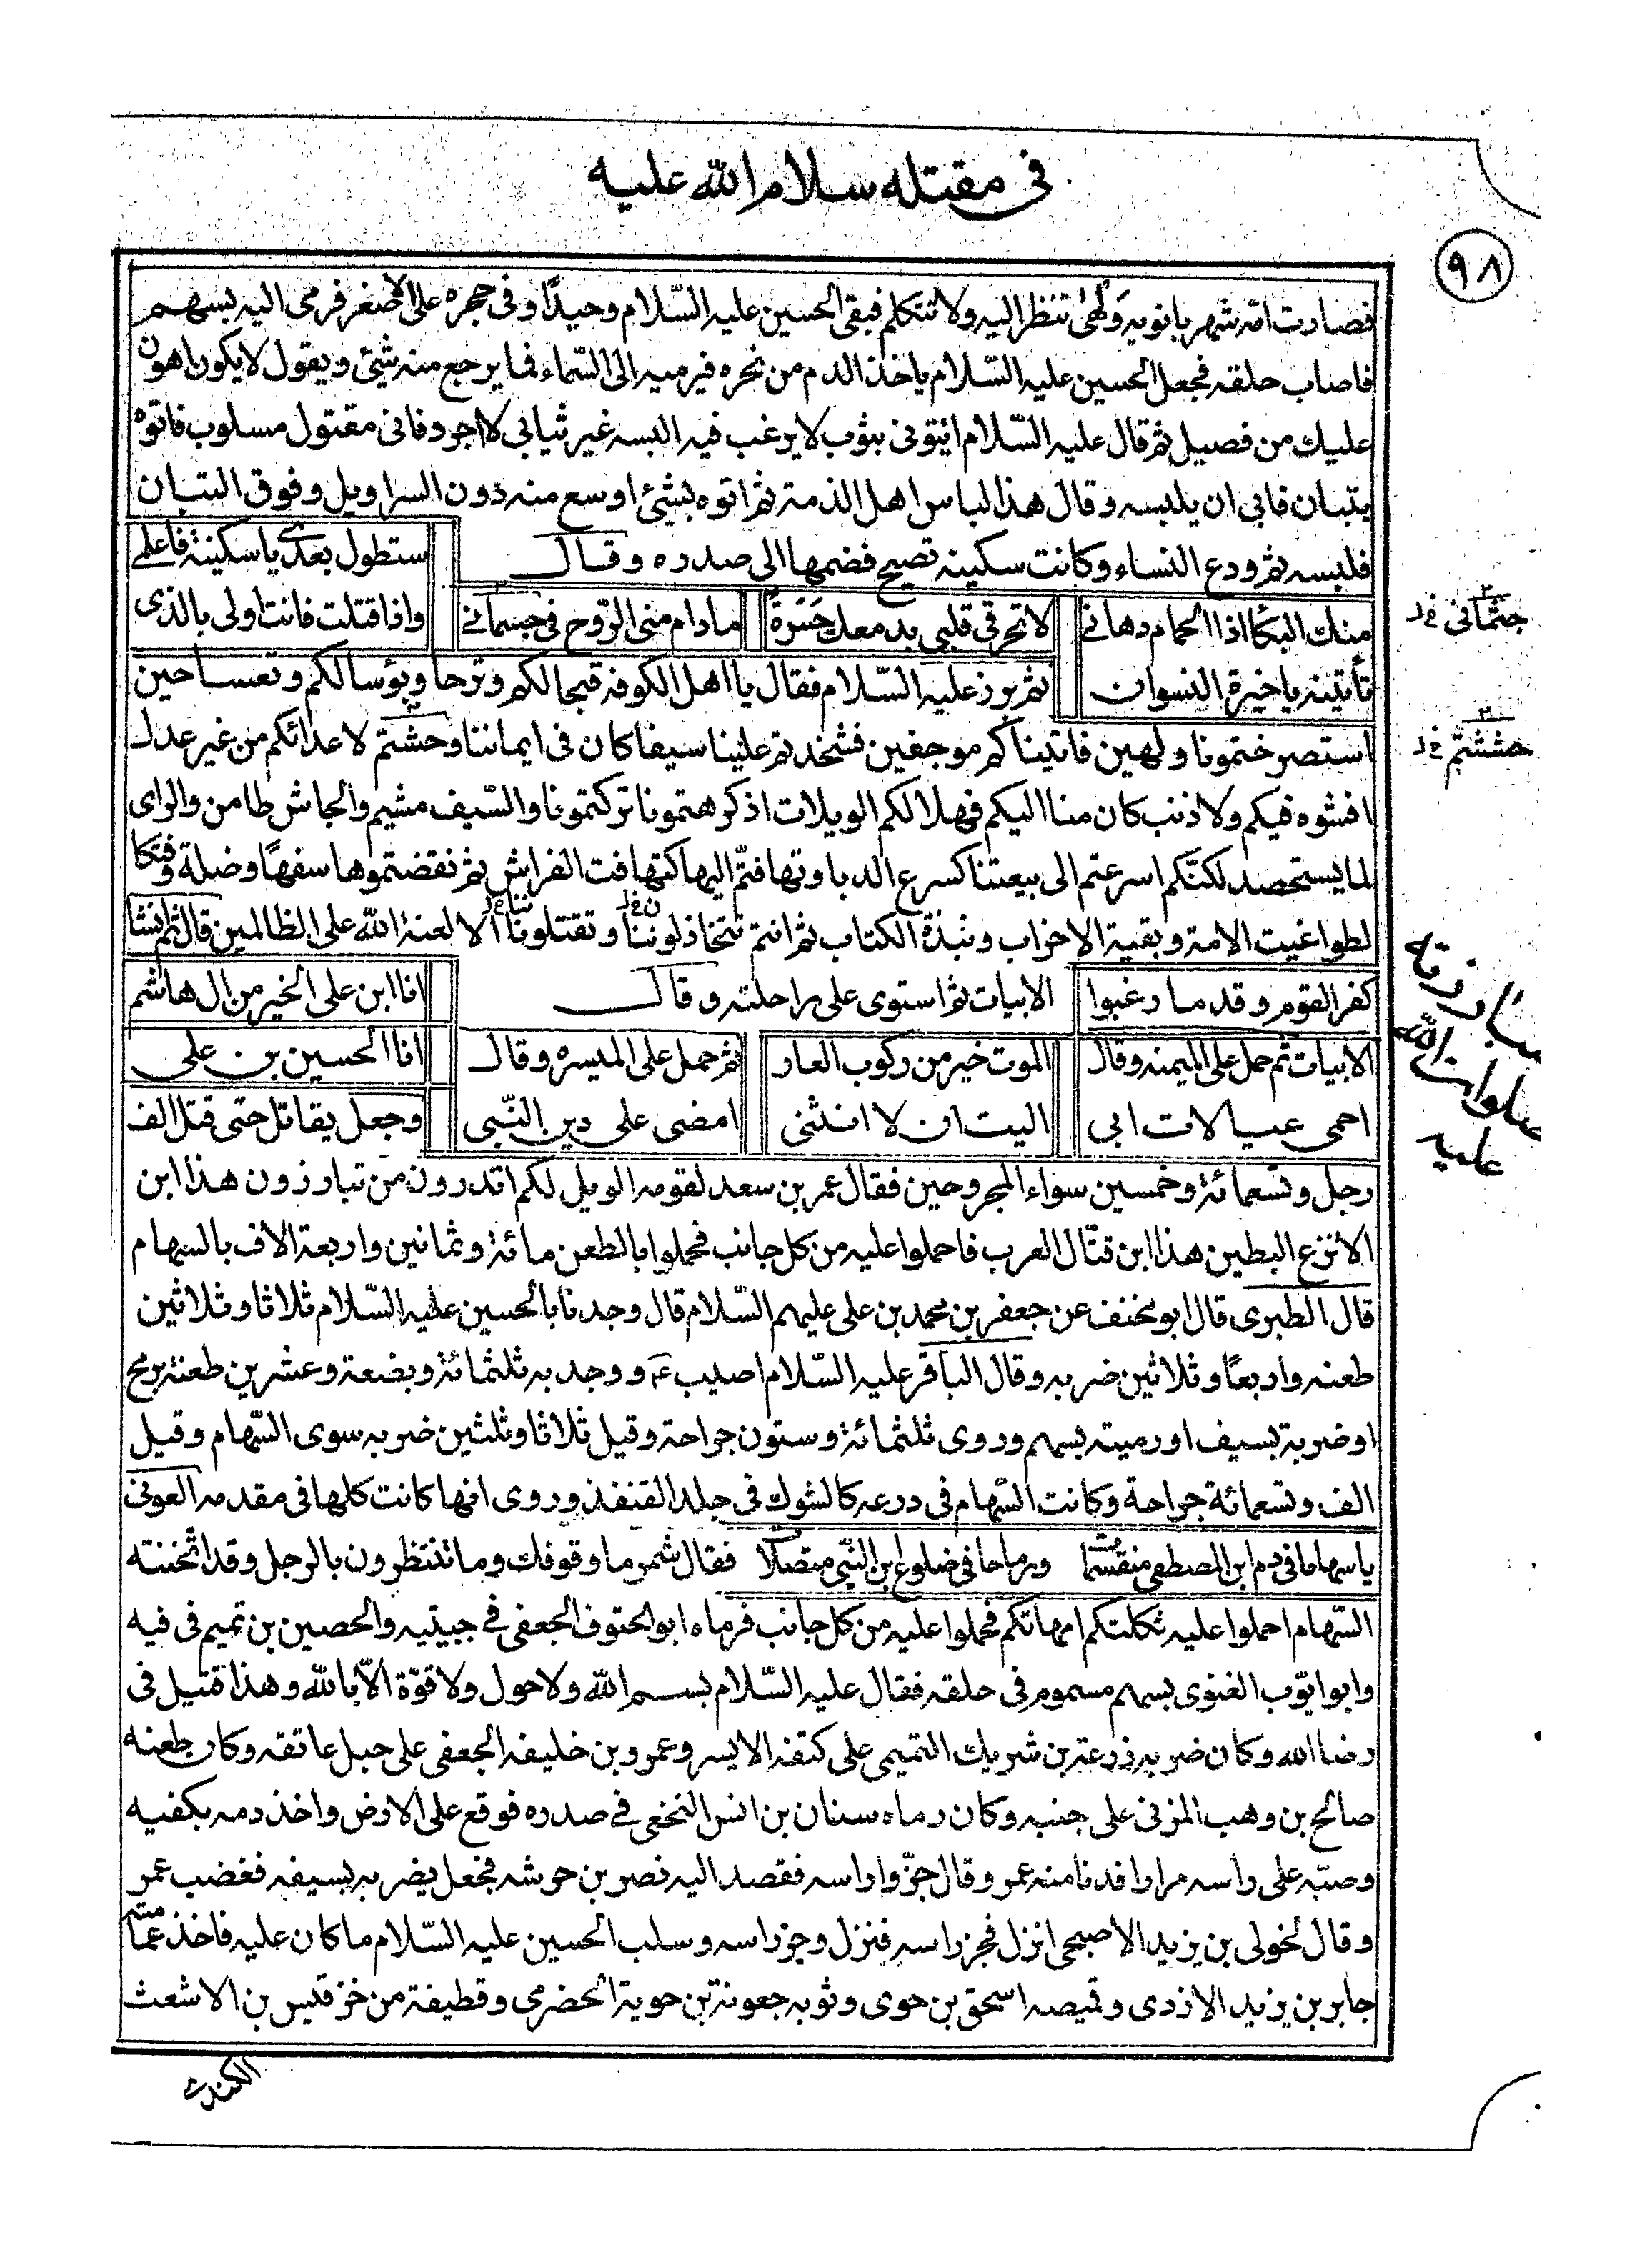 في مقتله سلام الله عليه
٩٨
فصارت امّه شهربانويه وَلْهى تنظر اليه ولا تتكلم فبقى الحسين عليه السّلام وحيدًا وفى حجره على الاصغر فرمى اليه بسهم
فاصاب حلقه فجعل الحسين عليه السّلام ياخذ الدم من نحره فيرميه الى السّماء فما يرجع منه شيئ ويقول لا يكون اهون
عليك من فصيل ثم قال عليه السّلام ائتونى بثوب لا يرغب فيه البسه غير ثيابى لا اجرد فانى مقتول مسلوب فاتوه
بتبان فابى ان يلبسه وقال هذا لباس اهل الذمة ثم اتوه بشيئ اوسع منه دون السراويل وفوق التبان
فلبسه ثم ودع النساء وكانت سكينه تصيح فضمها الى صدره وقال ستطول بعدى يا سكينة فاعلمى
منك البكا اذا الحمام دهانى لا تحرقى قلبى بدمعك حَسْرةً مادام منى الرّوح فى جسمانى واذا قتلت فانت اولى بالذى
جثمانى خ ل
تأتينه يا خيرة النسوان ثم برز عليه السّلام فقال يا اهل الكوفه قبحا لكم وترحا وبؤسا لكم وتعسا حين
استصرختمونا ولهين فاتيناكم موجفين فشحذتم علينا سيفا كان فى ايماننا وحشتم لاعدائكم من غير عدل
حششتم خ ل
افشوه فيكم ولا ذنب كان منا اليكم فهلا لكم الويلات اذ كرهتمونا تركتمونا والسّيف مشيم والجاش طامن والراى
لما يستحصد لكنّكم اسرعتم الى بيعتنا كسرع الدبا وتهافتّم اليها كتهافت الفراش ثم نقضتموها سفهًا وضلة وفتكا
لطواغيت الامة وبقية الاحزاب ونبذة الكتاب ثم انتم تتخاذلوننا وتقتلوننا الا لعنة الله على الظالمين قال ثم انشا
كفر القوم وقدما رغبوا الابيات ثم استوى على راحلته وقال انا ابن على الخير من ال هاشم
مبارزته صلوات الله عليه
الابيات ثم حمل على الميمنه وقال الموت خير من ركوب العار ثم حمل على الميسره وقال انا الحسين بن على
احمى عيالات ابى اليت ان لا انثنى امضى على دين النّبى وجعل يقاتل حتى قتل الف
رجل وتسعمائة وخمسين سواء المجروحين فقال عمر بن سعد لقومه الويل لكم اتدرون من تبارزون هذا ابن
الانزع البطين هذا ابن قتّال العرب فاحملوا عليه من كل جانب فحملوا بالطعن مائة وثمانين واربعة الاف بالسهام
قال الطبرى قال ابو مخنف عن جعفر بن محمد بن على عليهم السّلام قال وجدنا بالحسين عليه السّلام ثلاثا وثلاثين
طعنه واربعًا وثلاثين ضربه وقال الباقر عليه السّلام اصيب ع ووجد به ثلثمائة وبضعة وعشرين طعنة برمح
او ضربة بسيف او رميته بسهم وروى ثلثمائة وستون جراحة وقيل ثلاثا وثلثين ضربه سوى السّهام وقيل
الف وتسعمائة جراحة وكانت السّهام فى درعه كالشوك فى جلد القنفذ وروى انها كانت كلها فى مقدمه العونى
يا سهاما فى دم ابن المصطفى منقسما ورماحا فى ضلوع ابن النّبى متصلًا فقال شمر ما وقوفك وما تنتظرون بالرجل وقد اثخنته
السّهام احملوا عليه ثكلتكم امهاتكم فحملوا عليه من كل جانب فرماه ابو الحتوف الجعفى فى جبيتيه والحصين بن تميم فى فيه
وابو ايّوب الغنوى بسهم مسموم فى حلقه فقال عليه السّلام بسم الله ولا حول ولا قوّة الّا بالله وهذا قتيل فى
رضا الله وكان ضربه زرعة بن شريك التميمى على كتفه الايسر وعمرو بن خليفه الجعفى على حبل عاتقه وكان طعنه
صالح بن وهب المزنى على جنبه وكان رماه سنان بن انس النخعى فى صدره فوقع على الارض واخذ دمه بكفيه
وصبّه على راسه مرارا فدنا منه عمر وقال جزّوا راسه فقصد اليه نصر بن حرشه فجعل يضربه بسيفه فغضب عمر
وقال لخولى بن يزيد الاصبحى انزل فجز راسه فنزل وجز راسه وسلب الحسين عليه السّلام ما كان عليه فاخذ عمامته
جابر بن يزيد الازدى وقميصه اسحق بن حوى وثوبه جعونة بن حوية الحضرمى وقطيفة من خز قيس بن الاشعث
الكندى